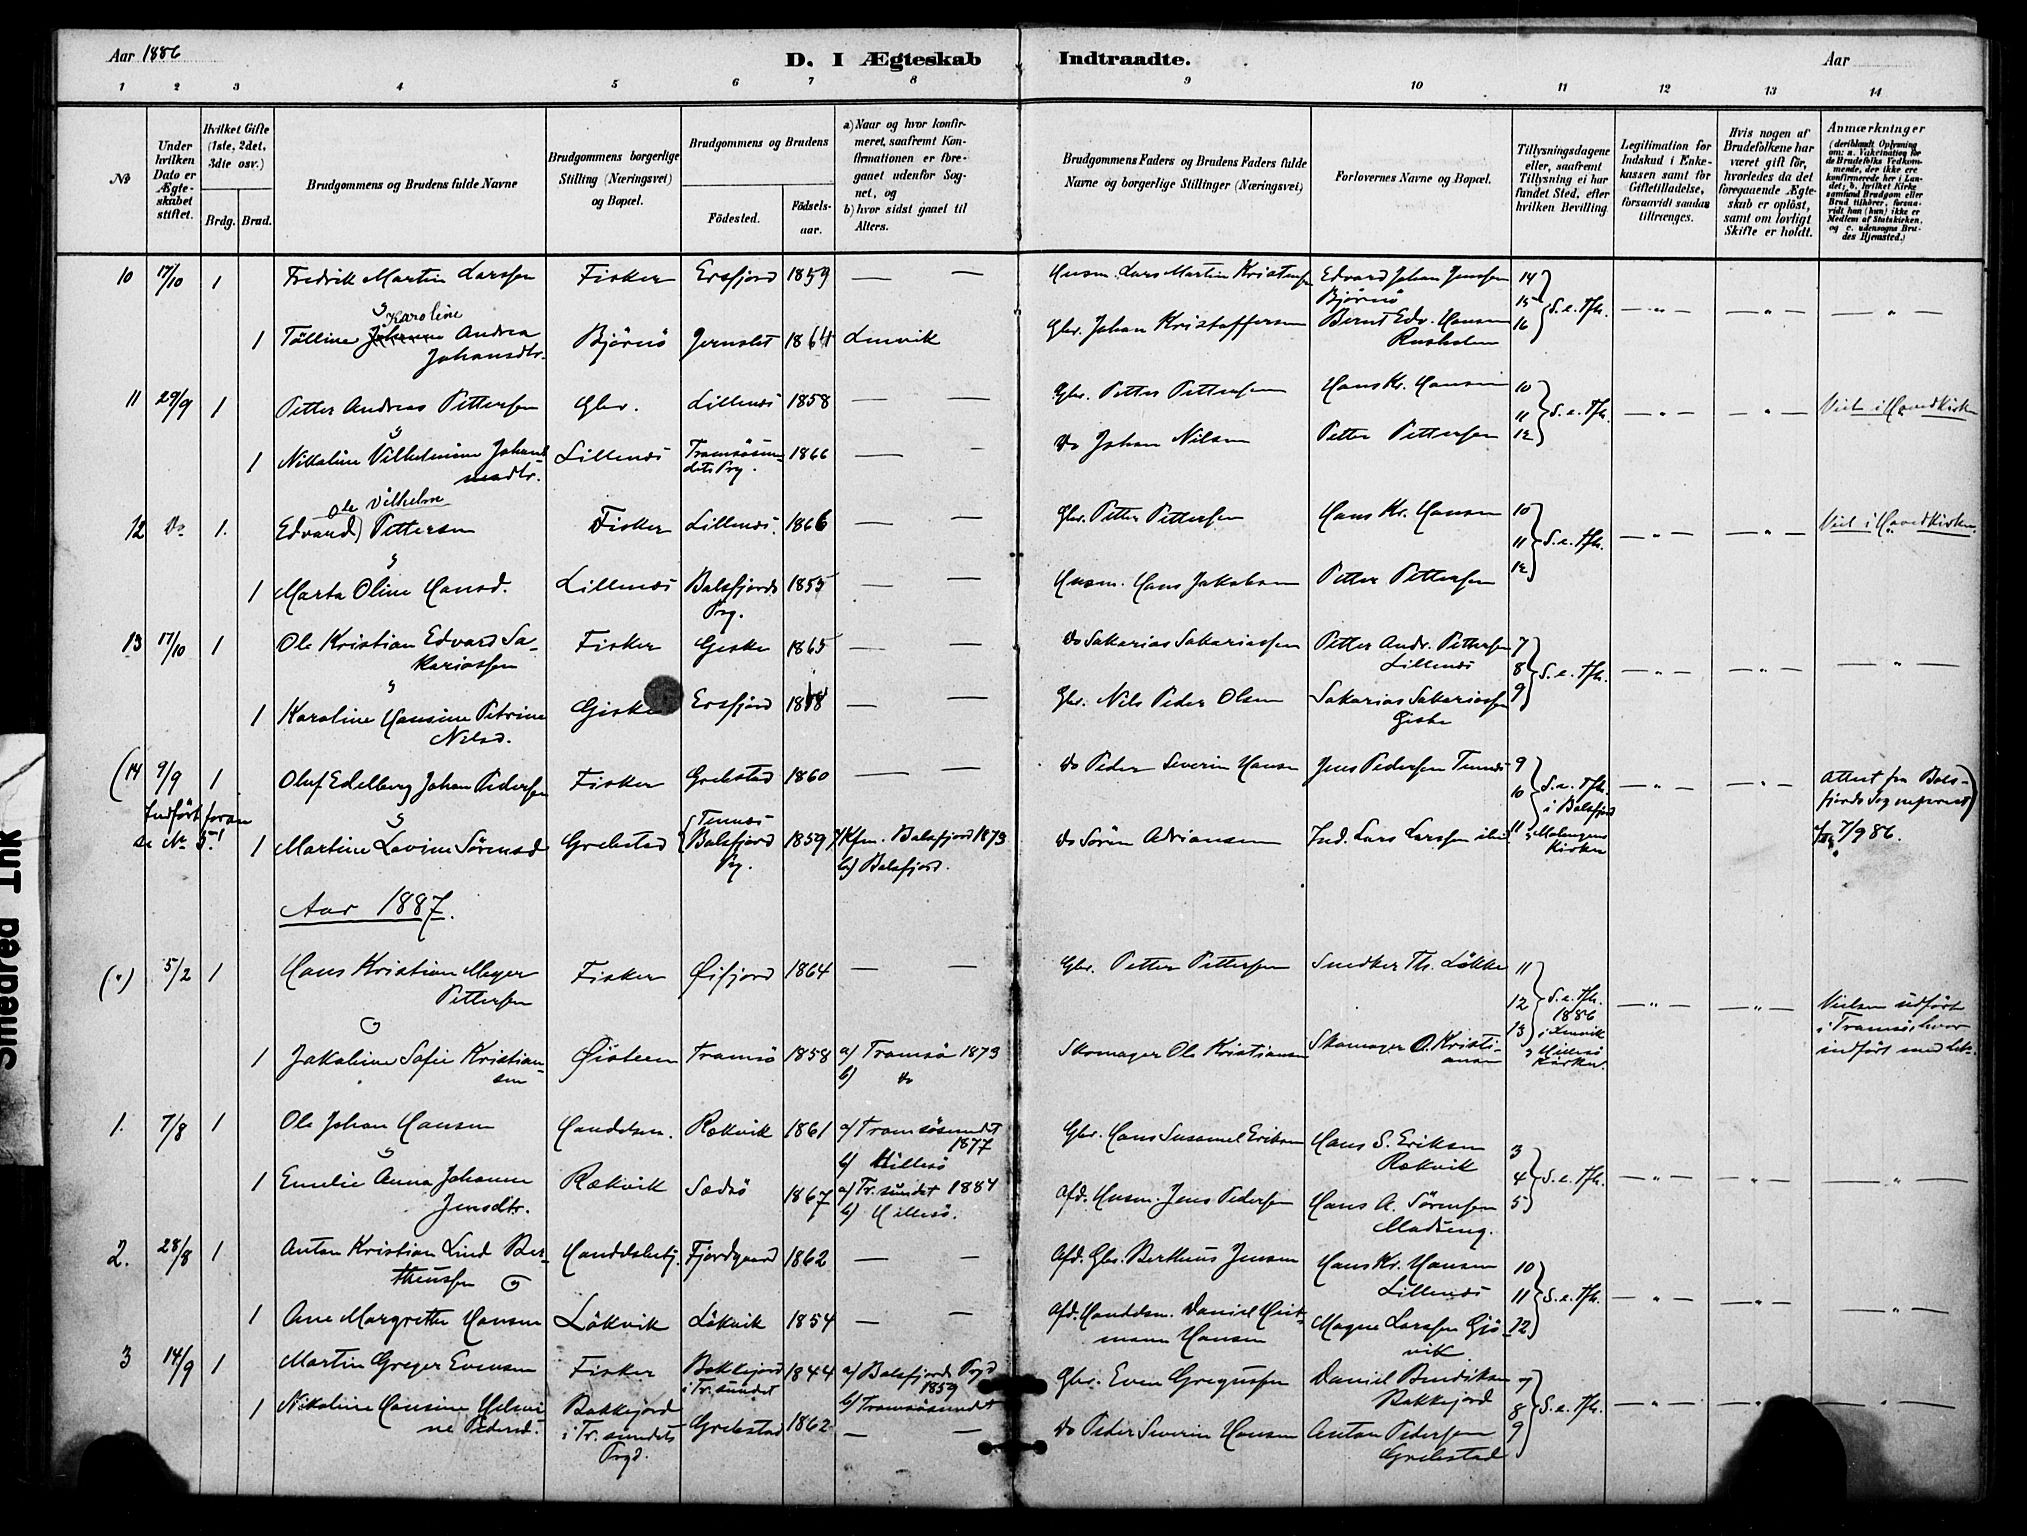 Aar 1886
D. I Ægteskab Indtraadte.
Aar
1 2 3 4 5 6 7 8 9 10 11 12 13 14
No
Under hvilken Dato er Ægteskabet stiftet.
Hvilket Gifte (1ste, 2det, 3die osv.)
Brdg. Brud.
Brudgommens og Brudens fulde Navne
Brudgommens borgerlige Stilling (Næringsvei) og Bopæl.
Brudgommens og Brudens
Födested.
Födselsaar.
a) Naar og hvor konfirmeret, saafremt Konfirmationen er foregaaet udenfor Sognet, og
b) hvor sidst gaaet til Alters.
Brudgommens Faders og Brudens Faders fulde Navne og borgerlige Stillinger (Næringsvei)
Forlovernes Navne og Bopæl.
Tillysningsdagene eller, saafremt Tillysning ei har fundet Sted, efter hvilken Bevilling
Legitimation for Indskud i Enkekassen samt for Giftetilladelse, forsaavidt saadan tiltrænges.
Hvis nogen af Brudefolkene har været gift før, hvorledes da det foregaaende Ægteskab er oplöst, samt om lovligt Skifte er holdt.
Anmærkninger
(deriblandt Oplysning om: a. Vakcination for de Brudefolks Vedkommende, der ikke ere konfirmerede her i Landet; b. hvilket Kirkesamfund Brudgom eller Brud tilhörer, forsaavidt han (hun) ikke er Medlem af Statskirken, og c. udensogns Brudes Hjemsted.)
10 17/10 1 Fredrik Martin Larssen Fisker Ersfjord 1859 — — Husm. Lars Martin Kristensen Edvard Johan Jenssen Bjørnö 14 15 16 S. e. Tfh. — " — — " — — " —
&
Karoline
1 Tölline Johanne Andrea Johansdtr. Bjørnö Jernslet 1864 Lenvik Gbr. Johan Kristoffersen Bernt Edv. Hansen Rusholm
11 29/9 1 Petter Andreas Pettersen Gbr. Lillenes 1858 — — Gbr. Petter Pettersen Hans Kr. Hansen 10 11 12 S. e. Tfh. — " — — " — Viet i Hovedkirken
&
1 Nikoline Vilhelmine Johansmadtr. Lillenes Tromsøsundets Prg. 1866 — - Do Johan Nilsen Petter Pettersen
Ole Vilhelm
12 Do 1. Edvard Pettersen Fisker Lillenes. 1866 — — Gbr. Petter Pettersen Hans Kr. Hansen 10 11 12 S. e. Tfh. — " — — " — Viet i Hovedkirken.
&
1 Marta Oline Hansd. Lillenes Balsfjords Prg. 1855 — — Husm. Hans Jakobsen Petter Pettersen
13 17/10 1 Ole Kristian Edvard Sakariassen Fisker Giske 1865 — — Do Sakarias Sakariassen Petter Andr. Pettersen Lillenes 7 8 9 S. e. Tfh. — " — — " — — " —
&
1 Karoline Hansine Petrine Nilsd. Giske Ersfjord — — Gbr. Nils Peder Olsen Sakarias Sakariassen Giske
(14 9/9 1 Oluf Edelberg Johan Pedersen Fisker Grebstad 1860 — — Do Peder Severin Hansen Jens Pedersen Tennes 9 10 11 S. e. Tfh. i Balsfjord & Malangens Kirker — " — — " — Attest fra Balsfjords Sognepræst) 7/9 86.
Indført foran se No 5!
&
1 Martine Lovine Sörensd Grebstad Tennes Balsfjord Prg. 1859 a/ Kfm. Balsfjord 1873 b) Balsfjord. Do Sören Adriansen Ind. Lars Larssen ibid.
Aar 1887.
(") 5/2 1 Hans Kristian Meyer Pettersen Fisker Øifjord 1864 — — Gbr. Petter Pettersen Snedker Th. Løkke 11 12 13 S. e. Tfh. 1886 i Lenvik & Hillesö Kirker. — " — — " — Vielsen udført i Tromsö, hvor indført med Lbr.
&
1 Jakobine Sofie Kristiansen Tromsö 1858 a) Tromsö 1873 b) Do Skomager Ole Kristiansen Skomager O. Kristiansen
1. 7/8 1 Ole Johan Hansen Handelsm. Rækvik 1861 a) Tromsösundet 1877 b) Hillesö Gbr. Hans Susamel Eriksen Hans S. Eriksen Rækvik 3 4 5 S. e. Tfh. — " — — " — — " —
&
1 Emelie Anna Johanne Jensdtr. Rækvik 1867 a) Tr. sundet 1884 b) Hillesö. Afd. Husm. Jens Pedersen Hans A. Sörensen
2. 28/8 1 Anton Kristian Lind Bertheussen Handelsbetj. Fjordgaard 1862 — — Afd. Gbr. Bertheus Jensen Hans Kr. Hansen Lillenes 10 11 12 S. e. Tfh. — " — — " — — " —
&
1 Ane Margrethe Hansen Løkvik Løkvik 1854 — — Afd. Handelsm. Daniel Hansen Magne Larssen Gjövik
3 14/9 1 Martin Greger Evensen Fisker Bakkejord i Tr. sundet 1844 a) Balsfjords Prgd 1859 b) Tromsösundet Gbr. Even Gregussen Daniel Bendiksen Bakkejord 7 8 9 S. e. Tfh. — " — — " — — " —
1 Nikoline Hansine Pedersd. Bakkejord i Tr. sundets Prgd. Grebstad 1862 — — Do Peder Severin Hansen Anton Pedersen Grebstad
Smedred Ink